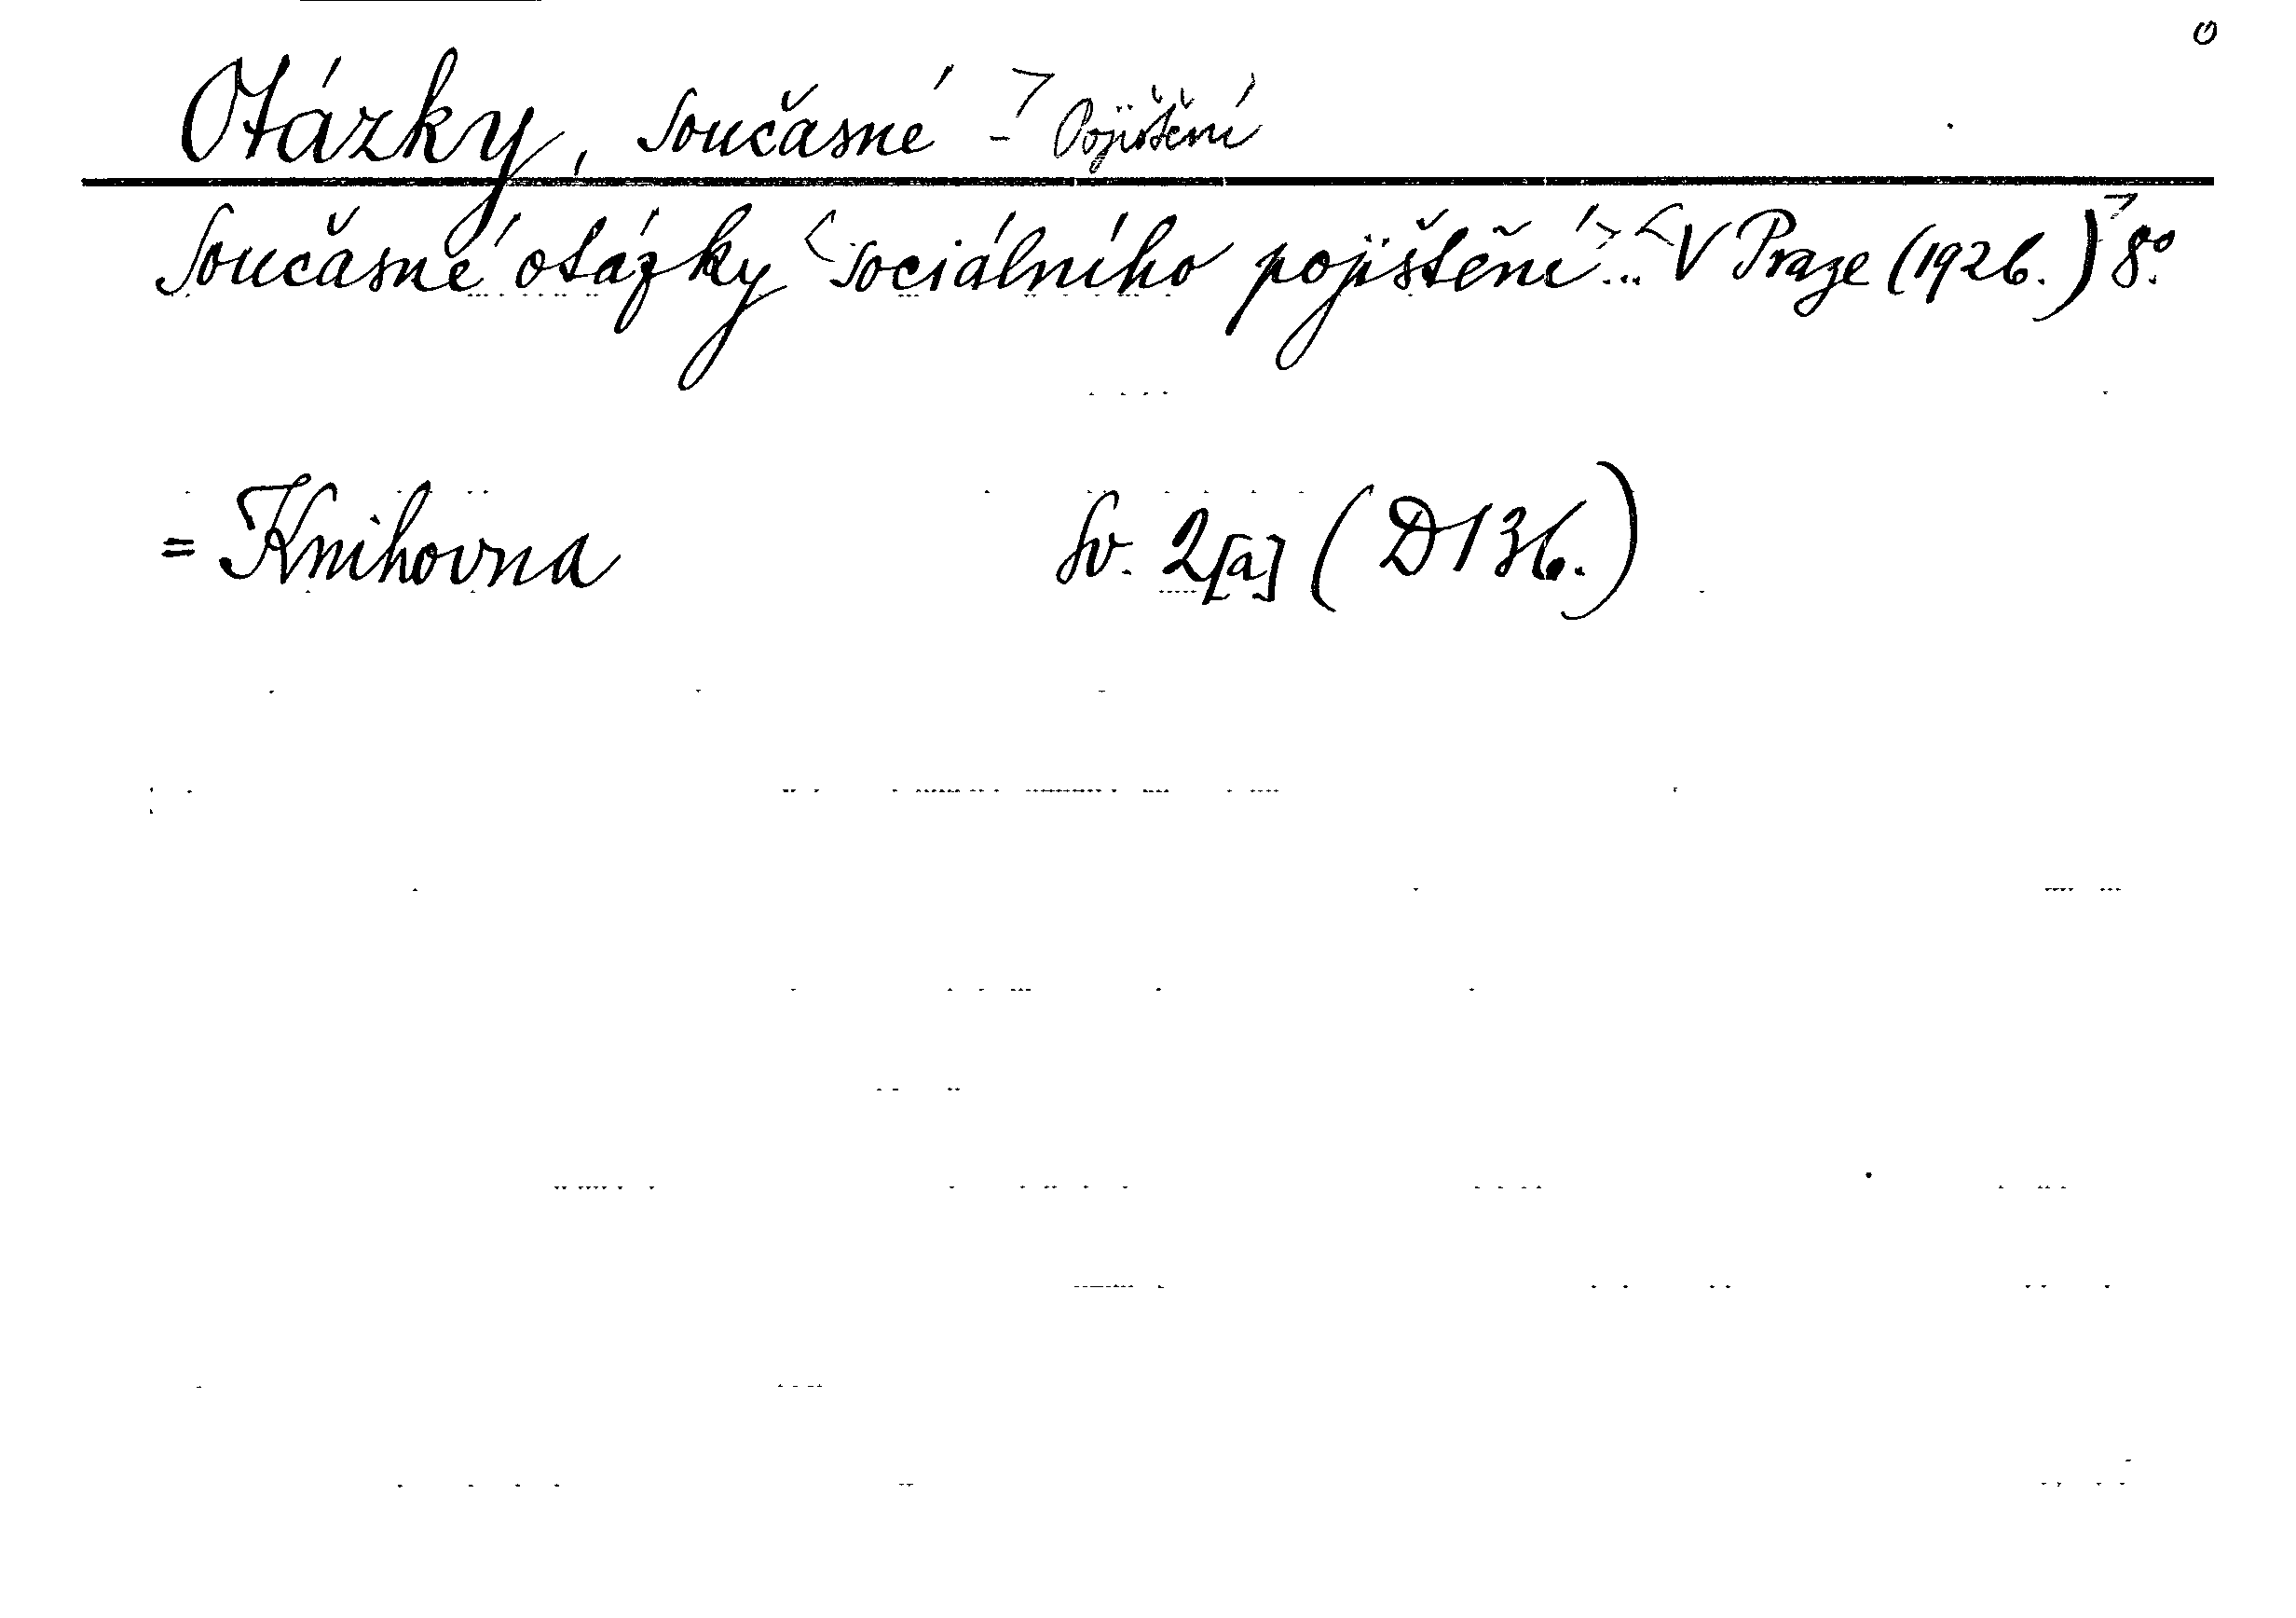 o
Otázky, současné - Pojištění
Současné otázky sociálního pojištění... V Praze (1926.) 8º.
= Knihovna Sv. 2[a] (D136.)